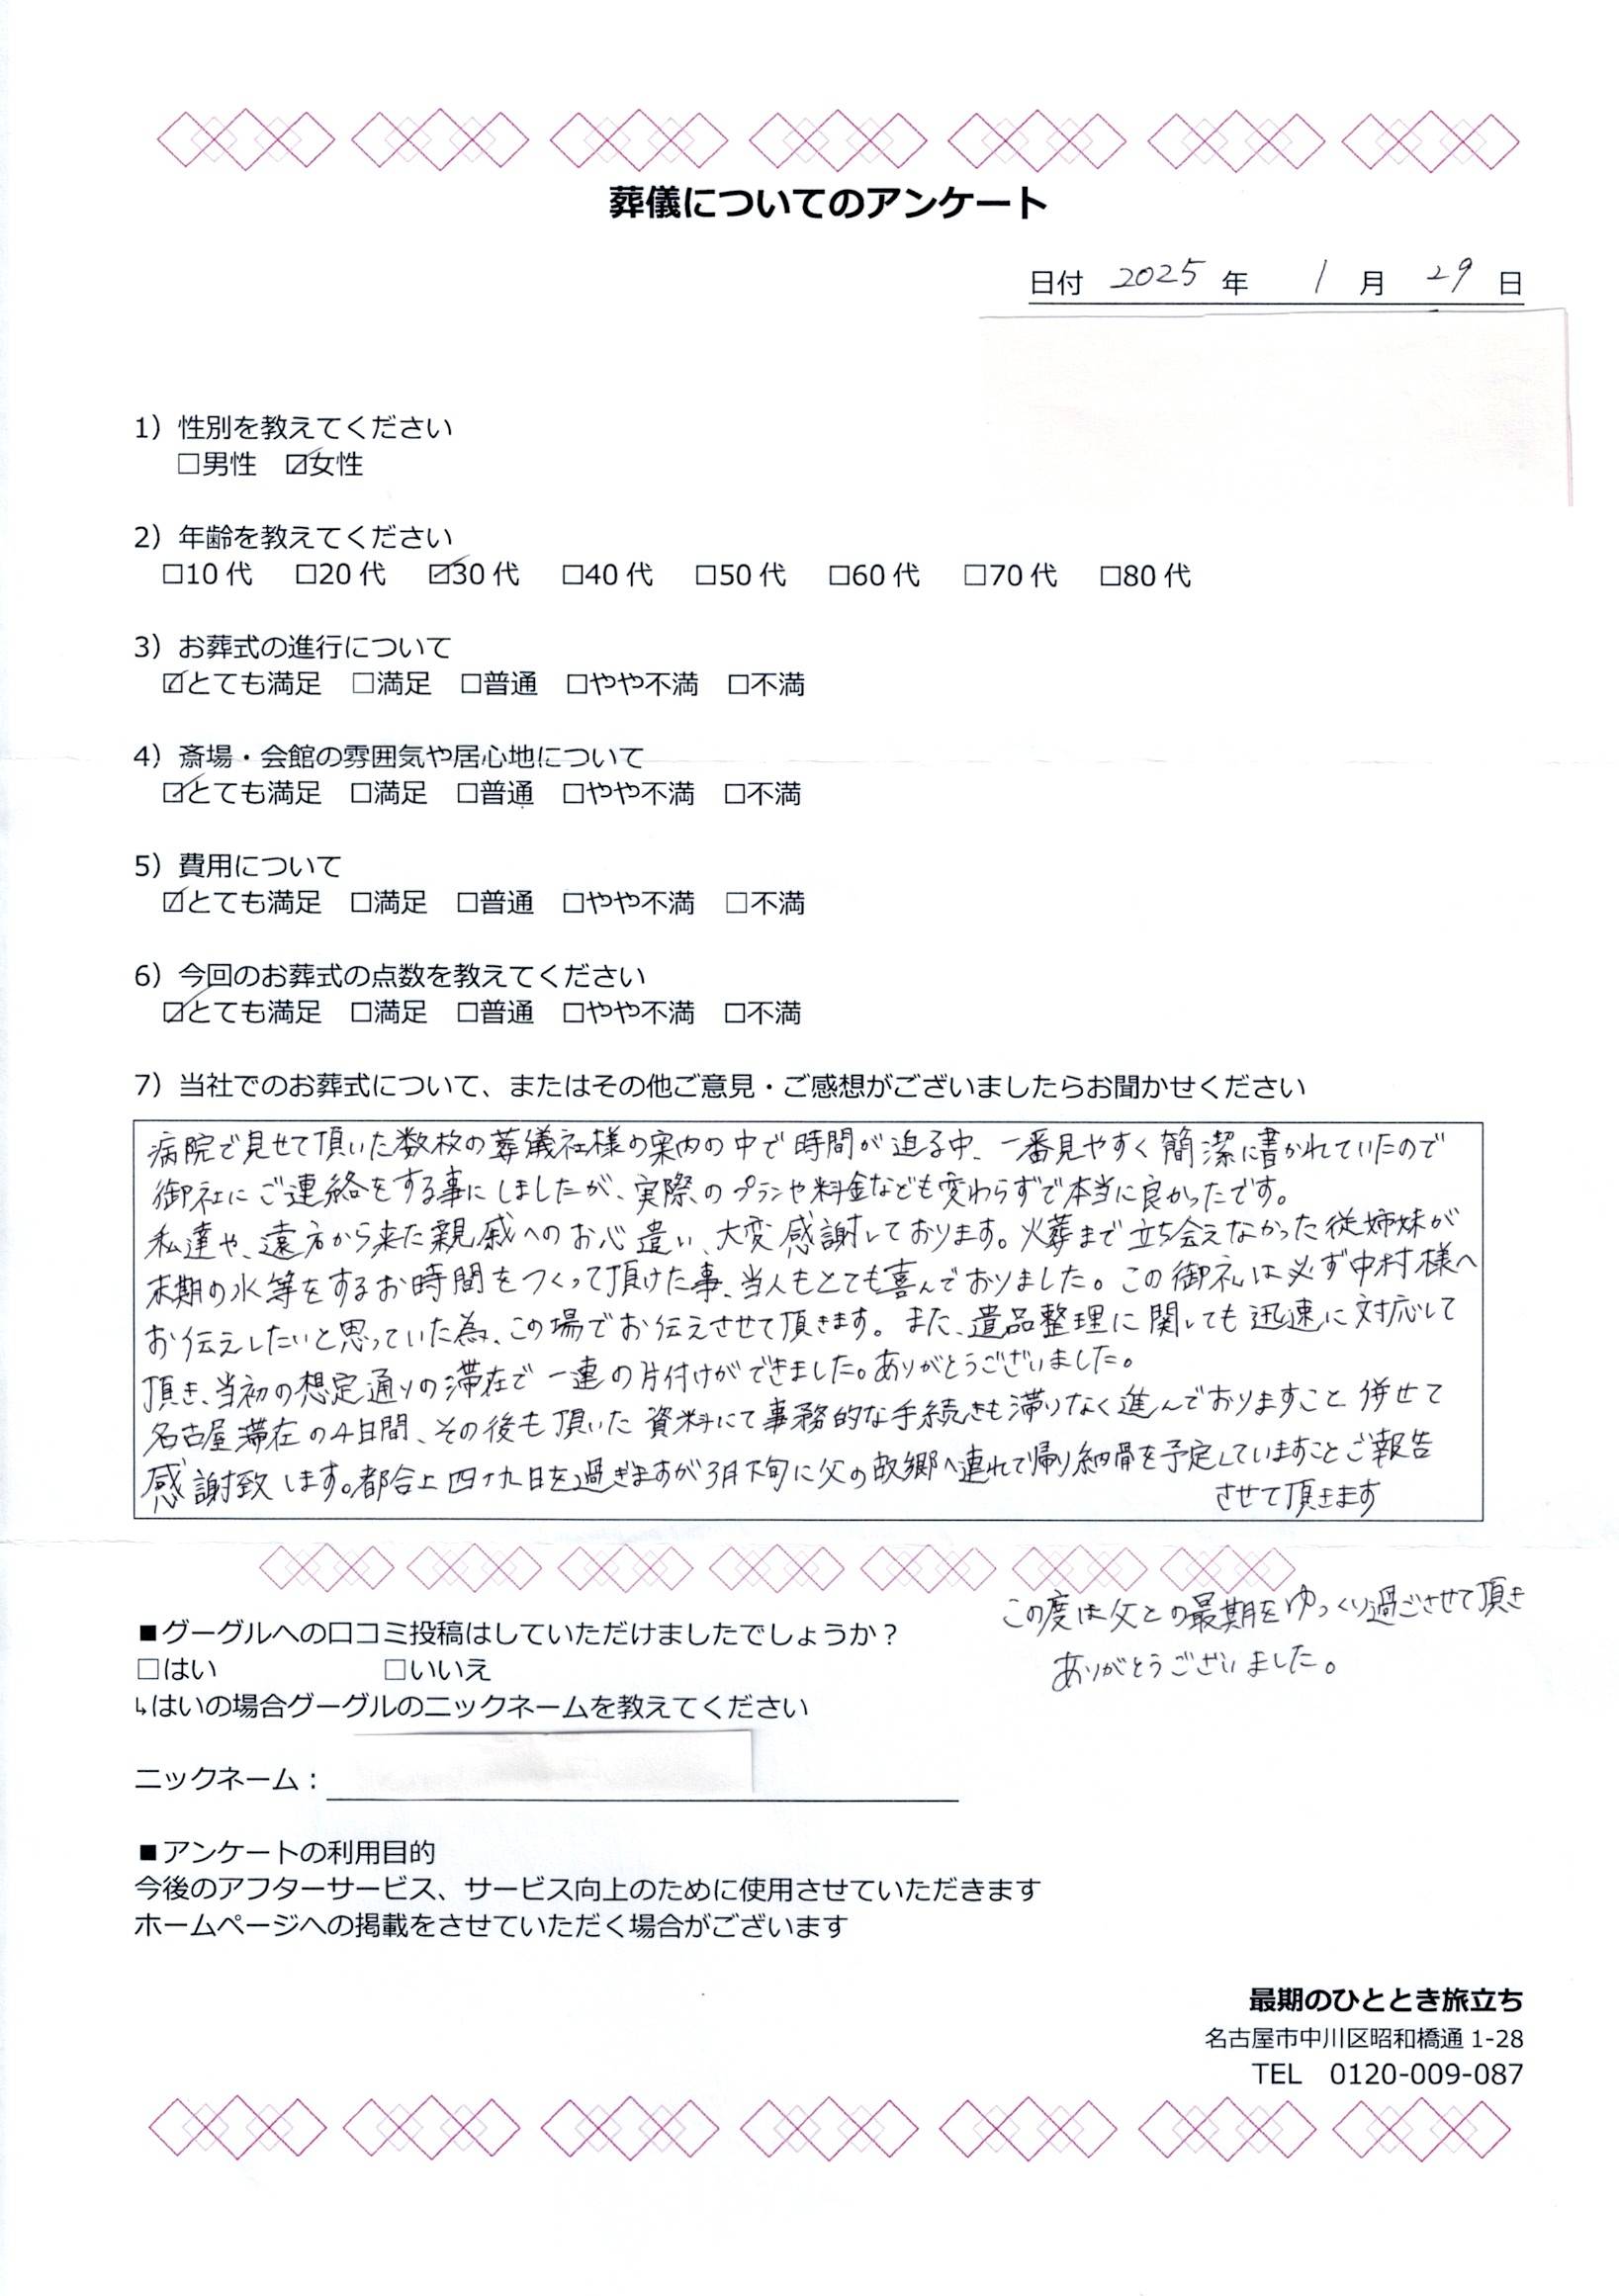 葬儀についてのアンケート
日付 2025 年 1 月 29 日
1）性別を教えてください
□男性 ☑女性
2）年齢を教えてください
□10 代 □20 代 ☑30 代 □40 代 □50 代 □60 代 □70 代 □80 代
3）お葬式の進行について
☑とても満足 □満足 □普通 □やや不満 □不満
4）斎場・会館の雰囲気や居心地について
☑とても満足 □満足 □普通 □やや不満 □不満
5）費用について
☑とても満足 □満足 □普通 □やや不満 □不満
6）今回のお葬式の点数を教えてください
☑とても満足 □満足 □普通 □やや不満 □不満
7）当社でのお葬式について、またはその他ご意見・ご感想がございましたらお聞かせください
病院で見せて頂いた数枚の葬儀社様の案内の中で時間が迫る中、一番見やすく簡潔に書かれていたので
御社にご連絡をする事にしましたが、実際のプランや料金なども変わらずで本当に良かったです。
私達や、遠方から来た親戚へのお心遣い、大変感謝しております。火葬まで立ち会えなかった従姉妹が
末期の水等をするお時間をつくって頂けた事、当人もとても喜んでおりました。この御礼は必ず中村様へ
お伝えしたいと思っていた為、この場でお伝えさせて頂きます。また、遺品整理に関しても迅速に対応して
頂き、当初の想定通りの滞在で一連の片付けができました。ありがとうございました。
名古屋滞在の4日間、その後も頂いた資料にて事務的な手続きも滞りなく進んでおりますこと併せて
感謝致します。都合上四十九日を過ぎますが3月下旬に父の故郷へ連れて帰り納骨を予定していますことご報告
させて頂きます
この度は父との最期をゆっくり過ごさせて頂き
ありがとうございました。
■グーグルへの口コミ投稿はしていただけましたでしょうか？
□はい □いいえ
↳はいの場合グーグルのニックネームを教えてください
ニックネーム：
■アンケートの利用目的
今後のアフターサービス、サービス向上のために使用させていただきます
ホームページへの掲載をさせていただく場合がございます
最期のひととき旅立ち
名古屋市中川区昭和橋通 1-28
TEL 0120-009-087